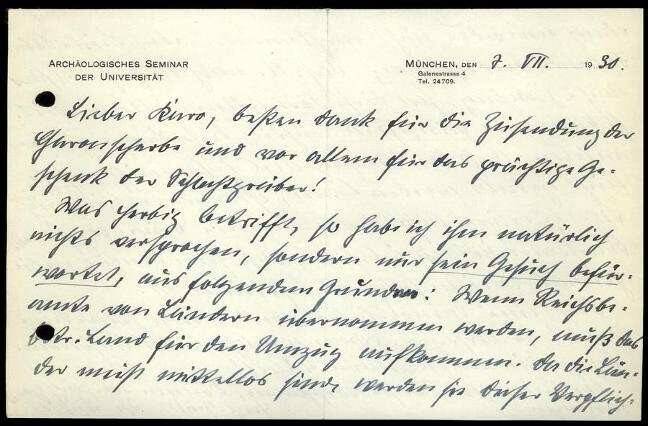 ARCHÄOLOGISCHES SEMINAR
DER UNIVERSITÄT
MÜNCHEN, DEN 7. VII. 1930.
Galeriestrasse 4
Tel. 24709.
Lieber Karo, besten Dank für die Zusendung der
und vor allem für das prächtige Ge-
schenk der Schachtgräber!
Was Herbig betrifft, so habe ich ihm natürlich
nichts versprochen, sondern nur sein Gesuch befür-
wortet, aus folgendem Grunde: Wenn Reichsbe-
amte von Ländern übernommen werden, muß das
betr. Land für den Umzug aufkommen. Da die Län-
der meist mittellos sind, werden sie dieser Verpflich-